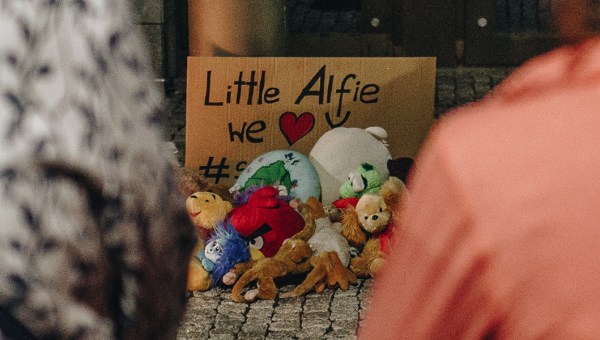 Little Alfie
we ❤ U